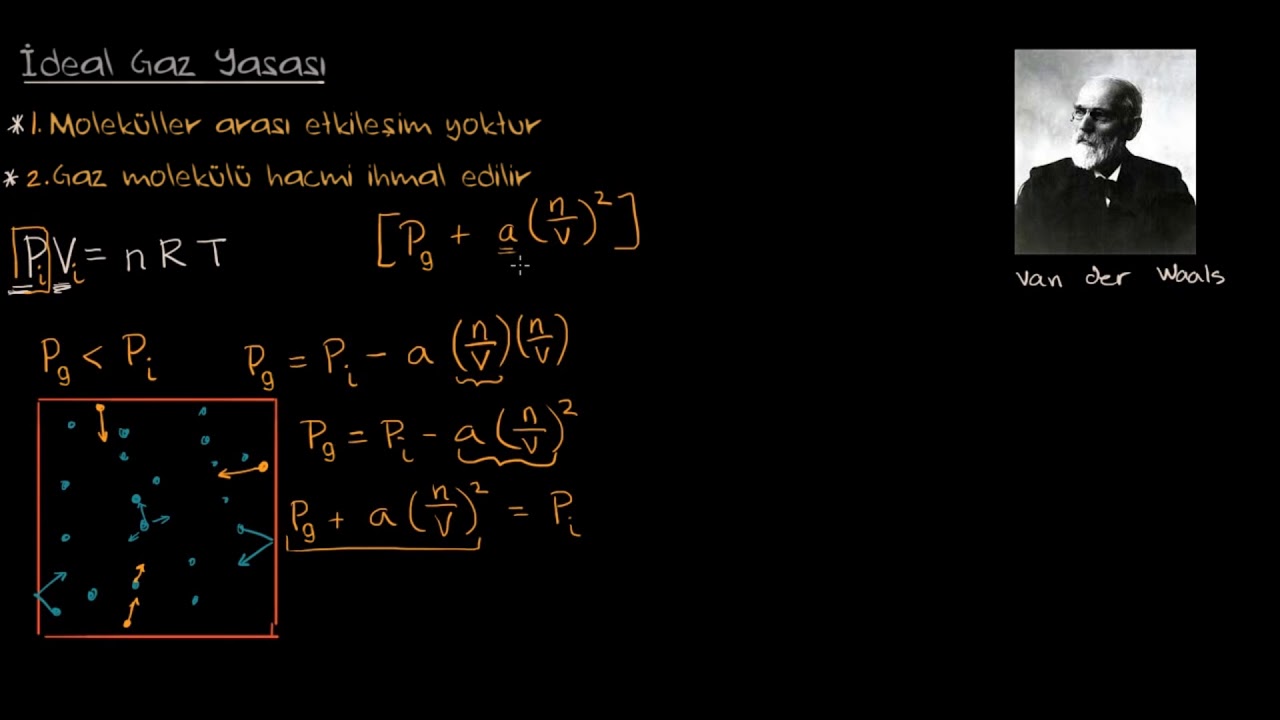 İdeal Gaz Yasası
* 1. Moleküller arası etkileşim yoktur
* 2. Gaz molekülü hacmi ihmal edilir
P_i V_i = n R T
[P_g + a (n/V)²]
van der Waals
P_g < P_i
P_g = P_i - a (n/V)(n/V)
P_g = P_i - a (n/V)²
P_g + a (n/V)² = P_i